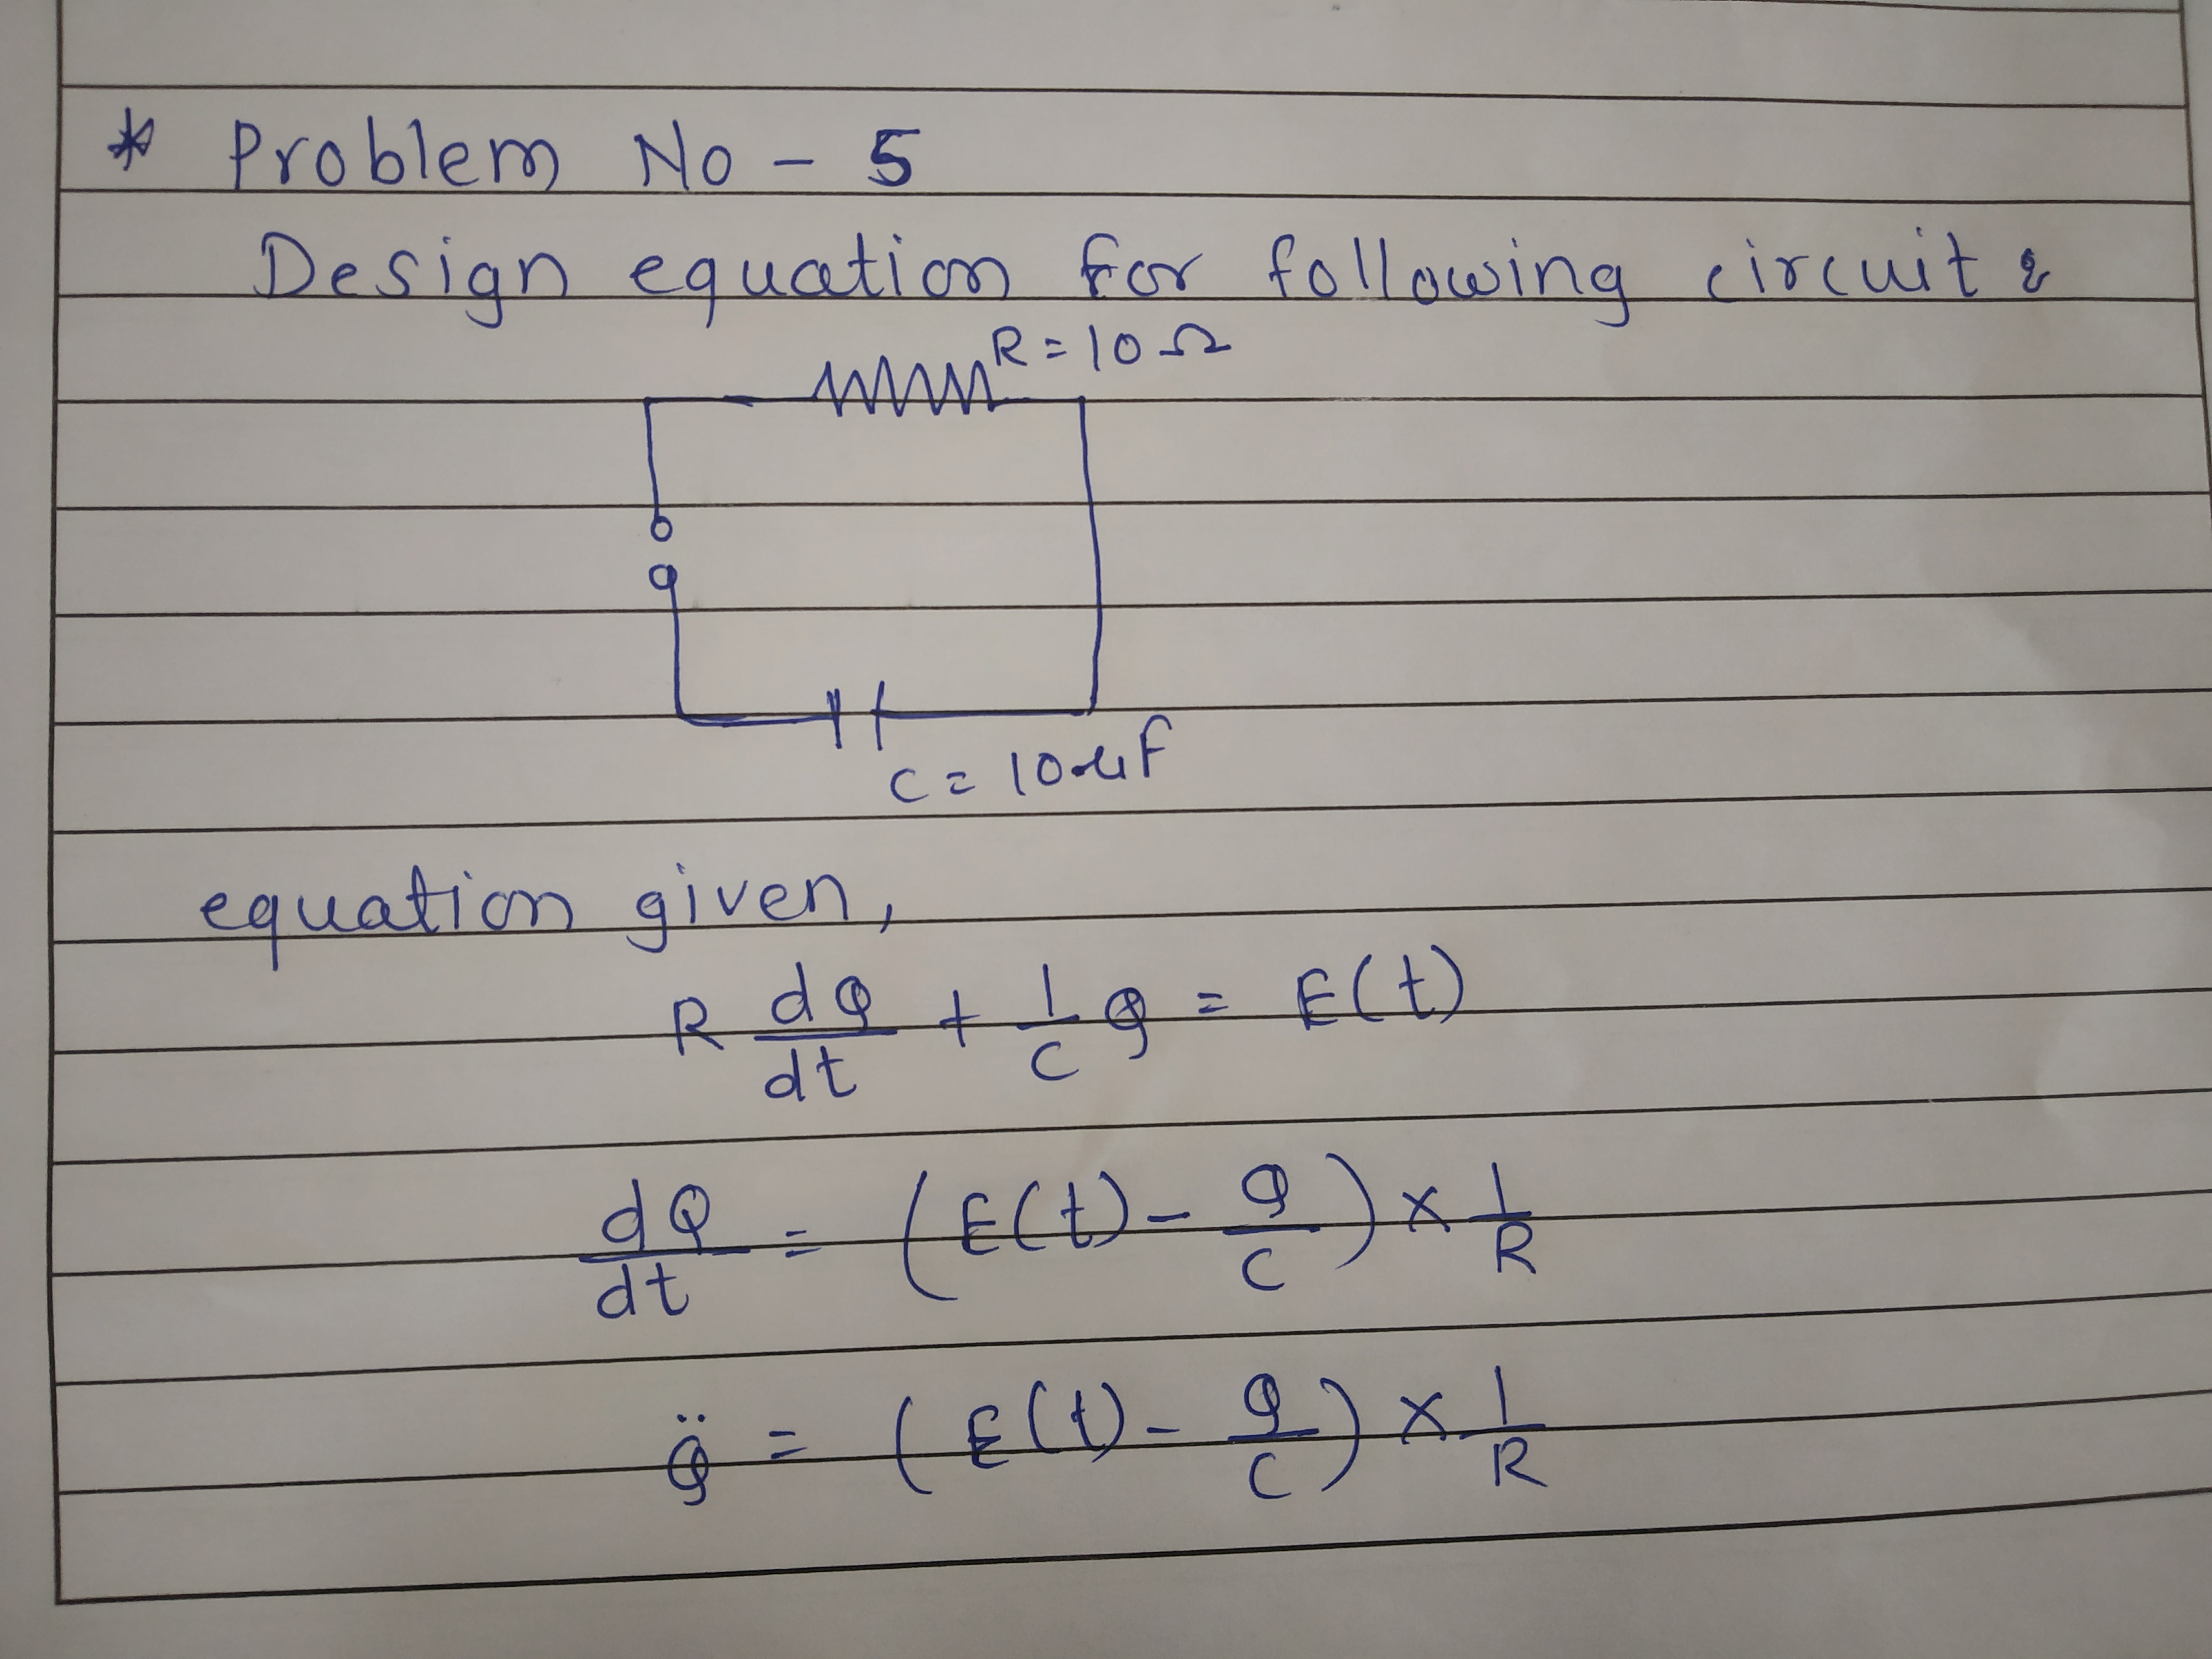 * Problem No - 5
Design equation for following circuit &
R = 10 Ω
C = 10 uF
equation given,
R dq/dt + 1/C q = E(t)
dq/dt = (E(t) - q/C) × 1/R
q̈ = (E(t) - q/C) × 1/R